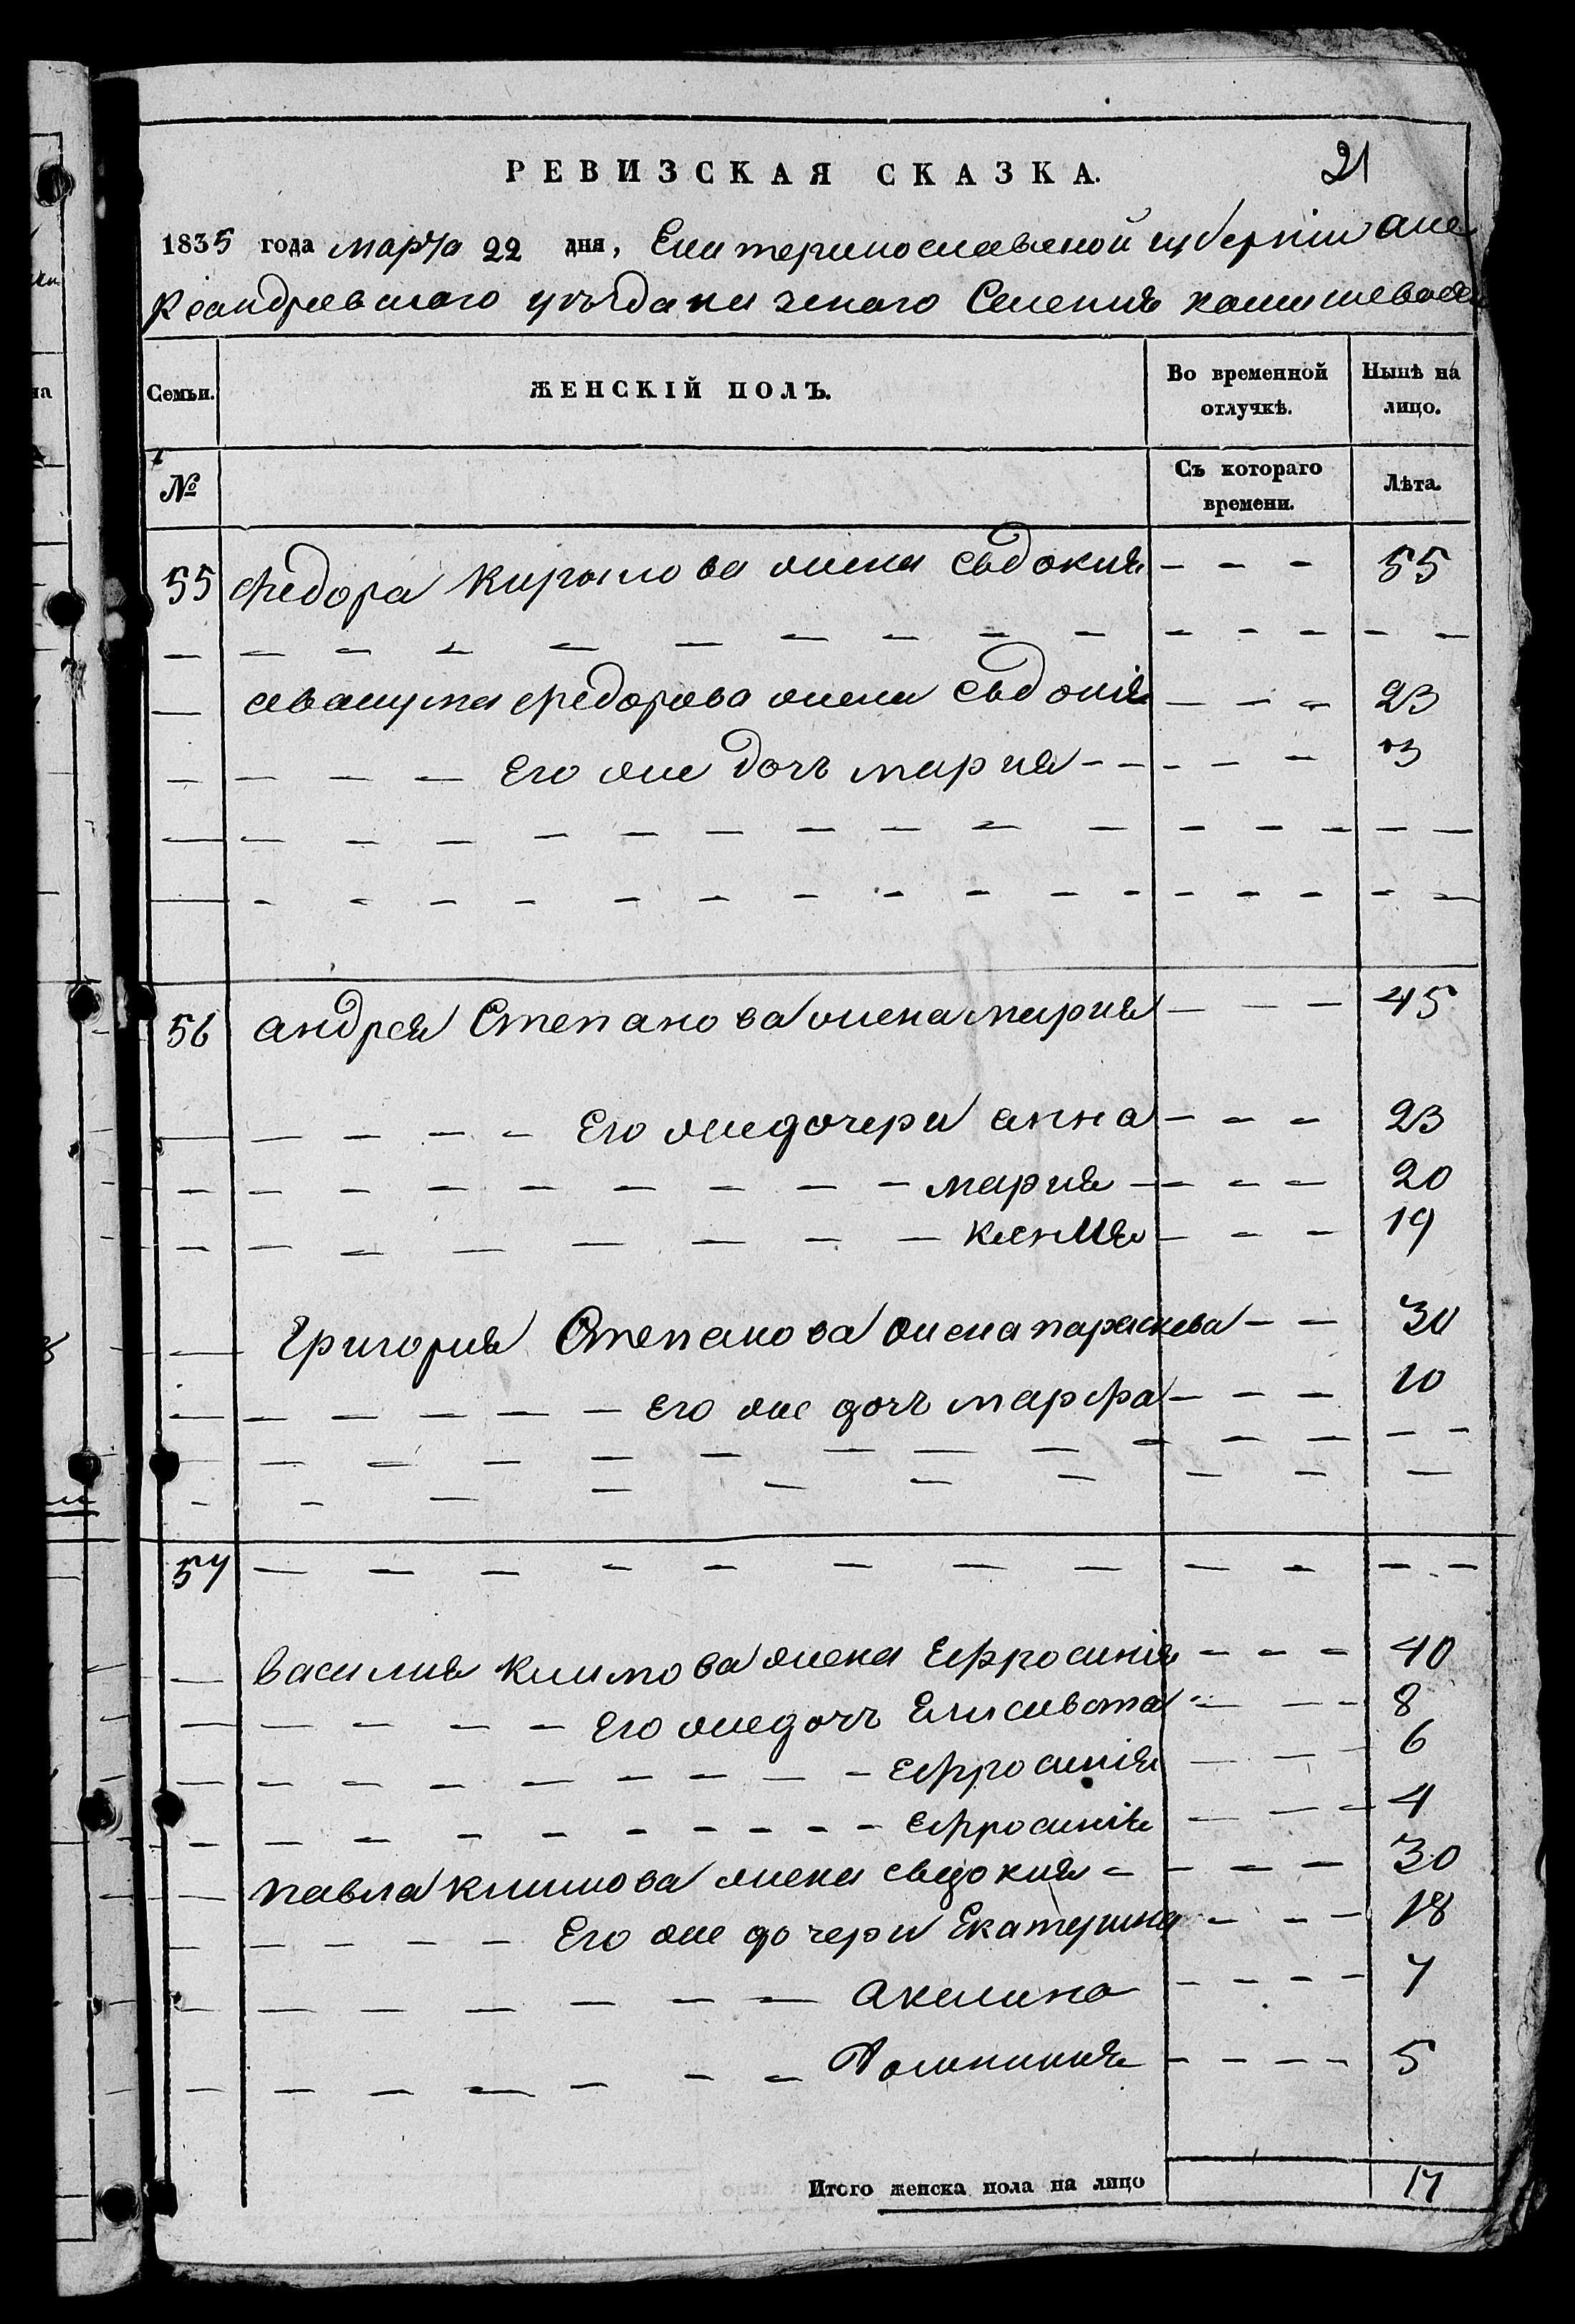 РЕВИЗСКАЯ СКАЗКА.
21
1835 года марта 22 дня, Екатеринославской губернии Але
ксандревского уъзда казенаго Селения камишевахи
Семьи.
ЖЕНСКІЙ ПОЛЪ.
Во временной отлучкѣ.
Нынѣ на лицо.
№
Съ котораго времени.
Лѣта.
55 Федора Кирилова жена Евдокия - - - 55
Федорова жена Евдокія - - - 23
Его же дочь мария - - - - - 3
56 андрея Степанова жена мария - - - 45
Его же дочери анна - - - 23
мария - - - - 20
ксения - - - 19
Григория Степанова жена параскева - - 30
Его же дочь марфа - - - 10
57
василия климова жена Ефросинія - - - 40
Его же дочь Елисавета - - - 8
Ефросинія - - - 6
Ефросинія - - - 4
павла климова жена евдокия - - - - 30
Его же дочери Екатерина - - - 18
Акелина - - - - 7
Домникия - - - - 5
Итого женска пола на лицо 17